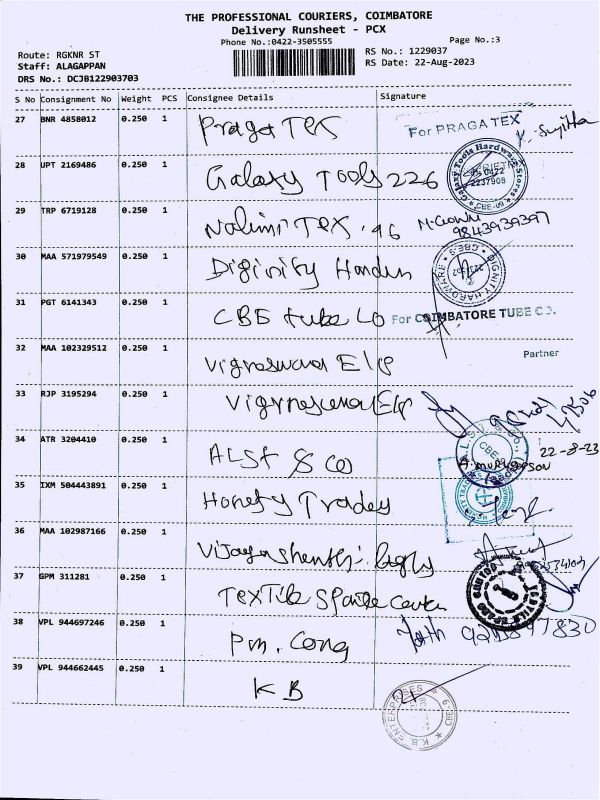 THE PROFESSIONAL COURIERS, COIMBATORE
Delivery Runsheet - PCX
Phone No.:0422-3505555 Page No.:3
Route: RGKNR ST RS No.: 1229037
Staff: ALAGAPPAN RS Date: 22-Aug-2023
DRS No.: DCJB122903703
S No Consignment No Weight PCS Consignee Details Signature
27 BNR 4858012 0.250 1 Praga Tex For PRAGA TEX
28 UPT 2169486 0.250 1 Galaxy Tools 226 Galaxy Tools Hardware Stores 0422 2237908 CBE-
29 TRP 6719128 0.250 1 Nalini Tex . 96 9843939397
30 MAA 571979549 0.250 1 DIGNITY HARDWARE CBE
31 PGT 6141343 0.250 1 CBE tube Co For COIMBATORE TUBE CO.
Partner
32 MAA 102329512 0.250 1
33 RJP 3195294 0.250 1
34 ATR 3204410 0.250 1 ALST & Co CBE 22-8-23
35 IXM 504443891 0.250 1
36 MAA 102987166 0.250 1
37 GPM 311281 0.250 1 Textile
38 VPL 944697246 0.250 1 Pm.
39 VPL 944662445 0.250 1 K B K.B. ENTERPRISES